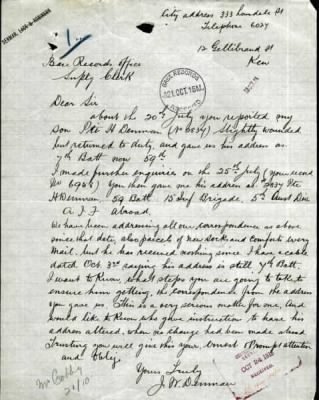 City address 333 Lonsdale St
Telephone 6024
12 Gellibrand St
Kew
Base Records Office
Supply Clerk
BASE RECORDS
21 OCT. 1916
RECEIVED
Dear Sir
about the 20th July you reported my
son Pte H Denman (No 2834) Slightly wounded
but returned to duty, and gave us his address as
7th Batt now 59th
I made further enquiries on the 25th July (your record
No 6965) You then gave me his address at 2834 Pte
H Denman, 59 Batt 15 Inf Brigade, 5th Aust Div
A I F Abroad.
We have been addressing all our correspondence as above
since that date, also parcels of new socks and comforts every
Mail. but he has received nothing since I have a cable
dated Oct 3rd saying his address is still 7th Batt.
I want to know what steps you are going to take to
ensure him getting the correspondence from the address
you gave us. This is a very serious matter for me. And
would like to know who gave instruction to have his
address altered, when no change had been made abroad
Trusting you will give this your most & Prompt attention
and Oblige
Yours Truly
J. W. Denman
OCT 24 1916
21/10